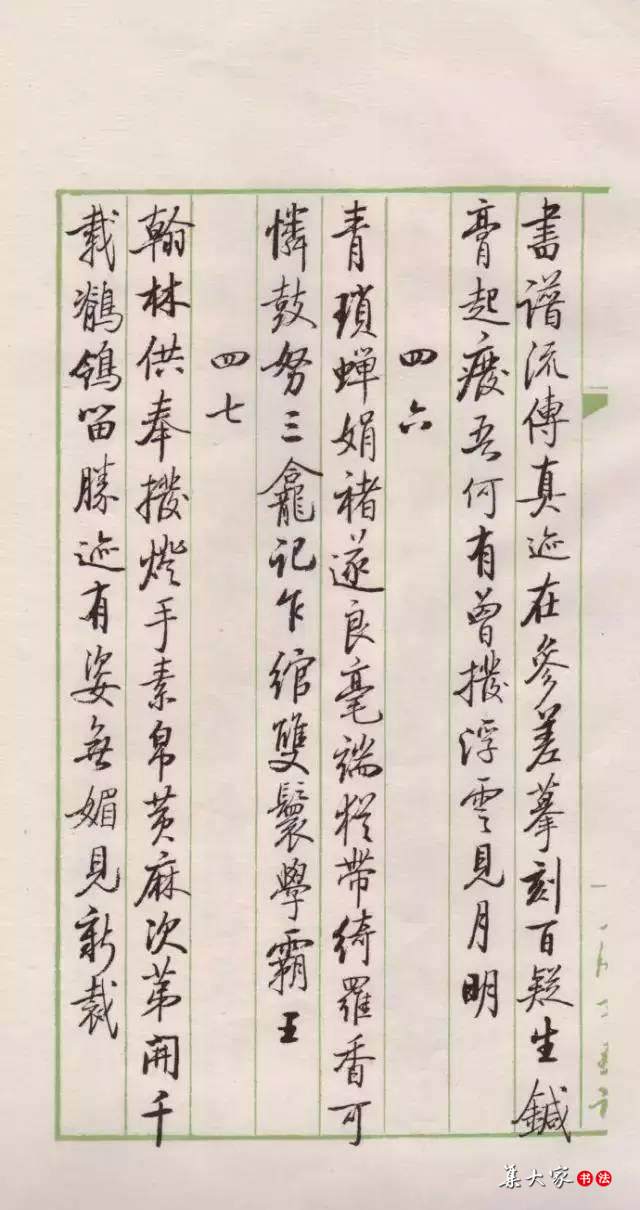 書谱流傳真迹在參差摹刻百疑生鍼
膏起癈吾何有曾撥浮雲見月明
四六
青瑣蝉娟褚遂良毫端猶带绮羅香可
憐鼓努三龕記乍綰雙鬟學霸王
四七
翰林供奉撥燈手素帛黄麻次第開千
載鶺鴒留勝迹有姿無媚見新裁
集大家
書法